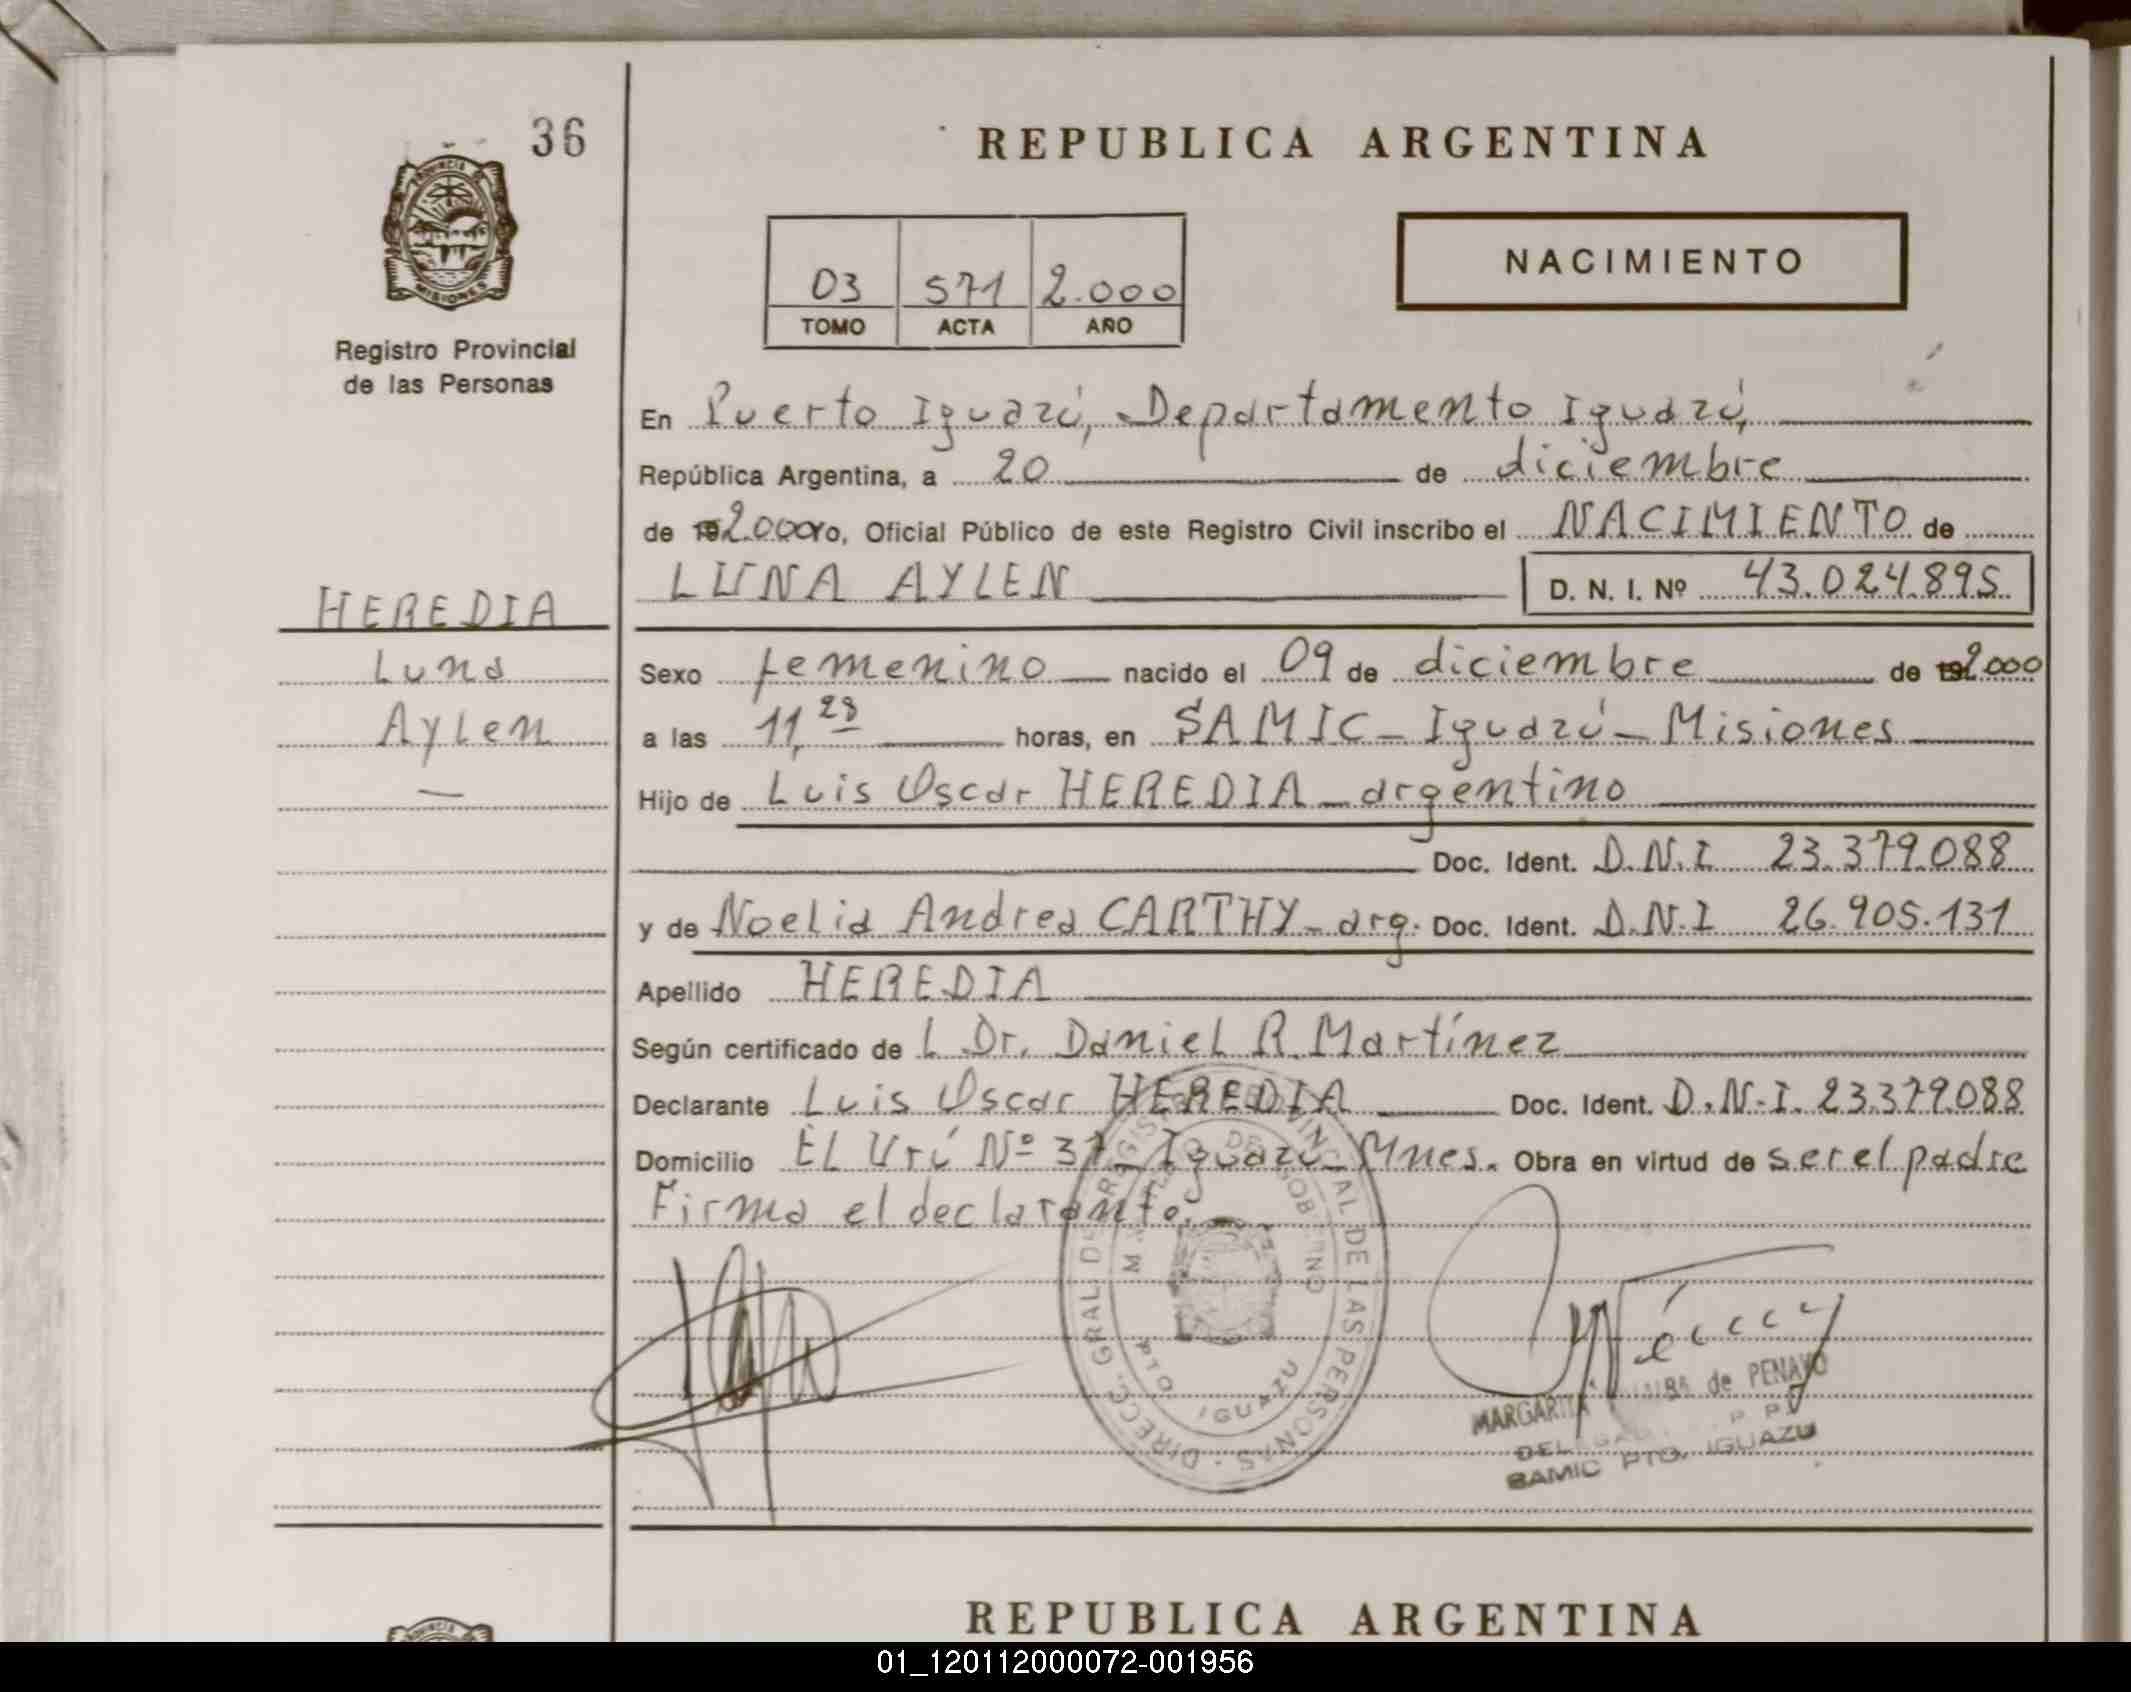 36
PROVINCIA DE
MISIONES
Registro Provincial
de las Personas
HEREDIA
Luna
Aylen
—
REPUBLICA ARGENTINA
03 571 2.000
TOMO ACTA AÑO
NACIMIENTO
En Puerto Iguazú, Departamento Iguazú,
República Argentina, a 20 de diciembre
de 192.000 Yo, Oficial Público de este Registro Civil inscribo el NACIMIENTO de
LUNA AYLEN D. N. I. Nº 43.024.895
Sexo femenino nacido el 09 de diciembre de 192.000
a las 11,28 horas, en SAMIC - Iguazú - Misiones
Hijo de Luis Oscar HEREDIA - argentino
Doc. Ident. D.N.I 23.379.088
y de Noelia Andrea CARTHY - arg. Doc. Ident. D.N.I 26.905.131
Apellido HEREDIA
Según certificado de L Dr. Daniel R. Martínez
Declarante Luis Oscar HEREDIA Doc. Ident. D.N.I. 23.379.088
Domicilio El Urú Nº 37 Iguazú - Mnes. Obra en virtud de ser el padre
Firma el declarante.
DIRECC. GRAL. DE REGISTRO PROVINCIAL DE LAS PERSONAS
DE GOBIERNO
PTO. IGUAZU
MARGARITA de PENAYO
SAMIC PTO. IGUAZU
REPUBLICA ARGENTINA
01_120112000072-001956